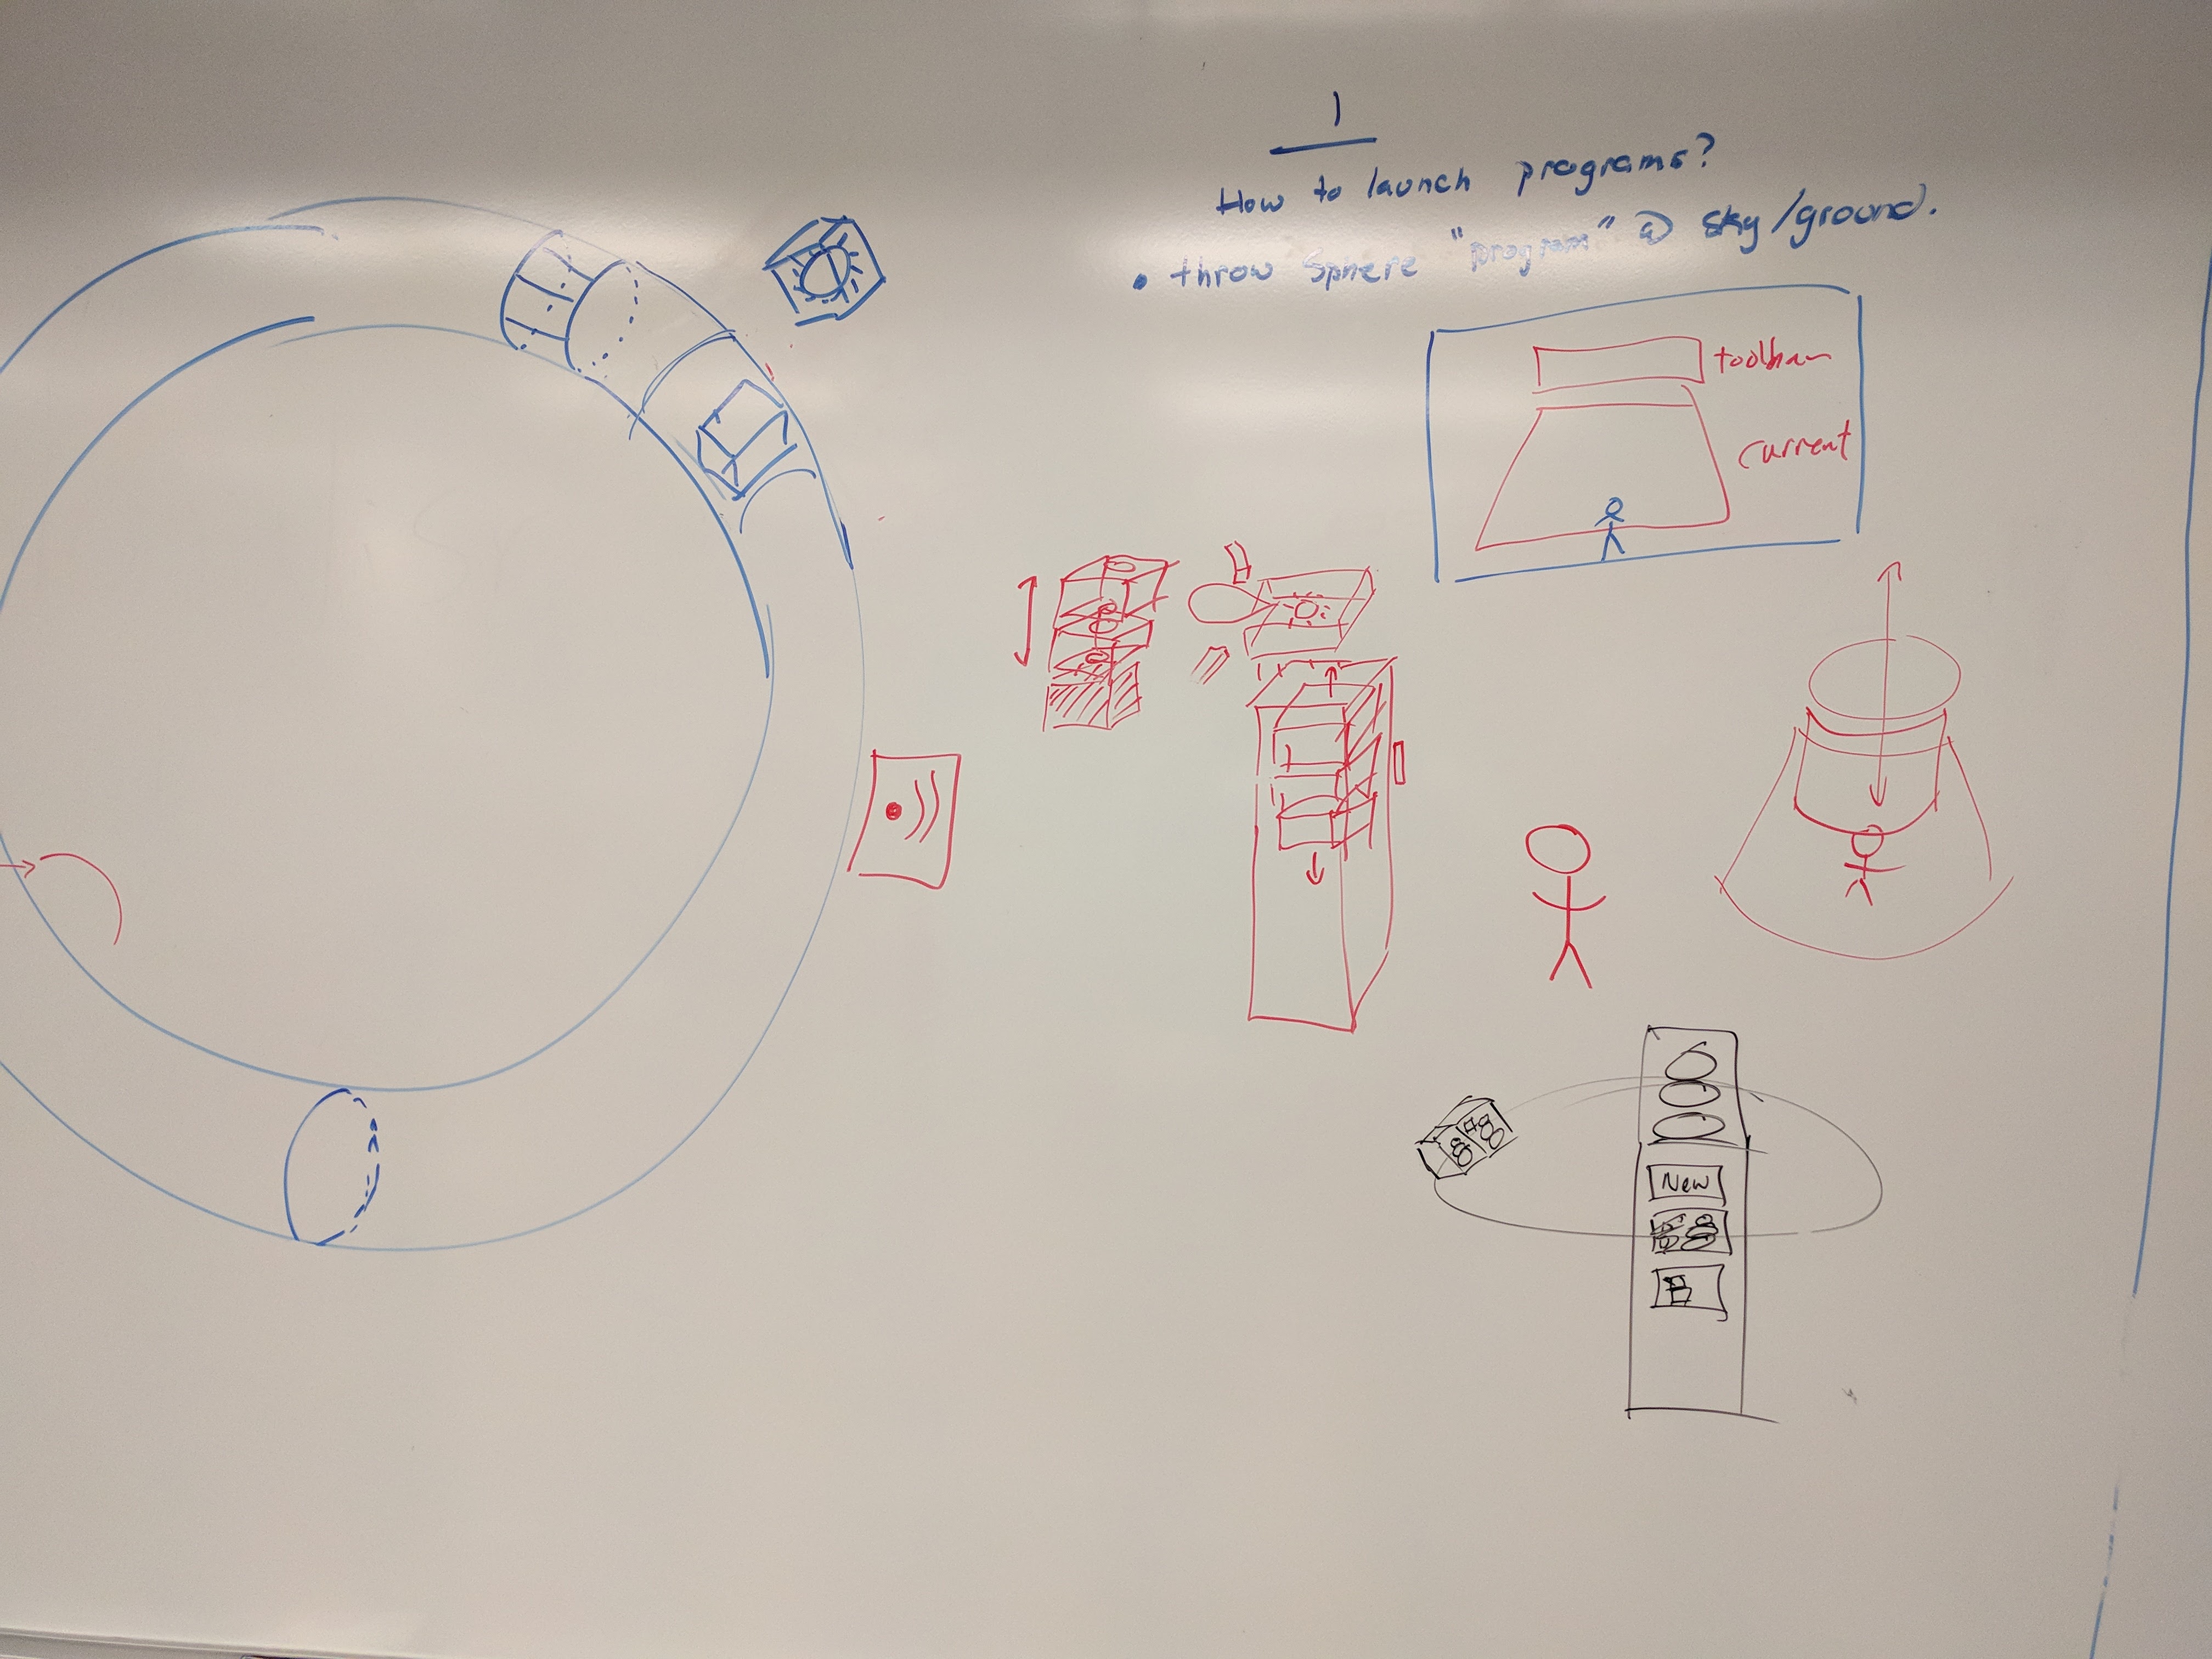 1
How to launch programs?
• throw sphere "program" @ sky/ground.
toolbar
current
New